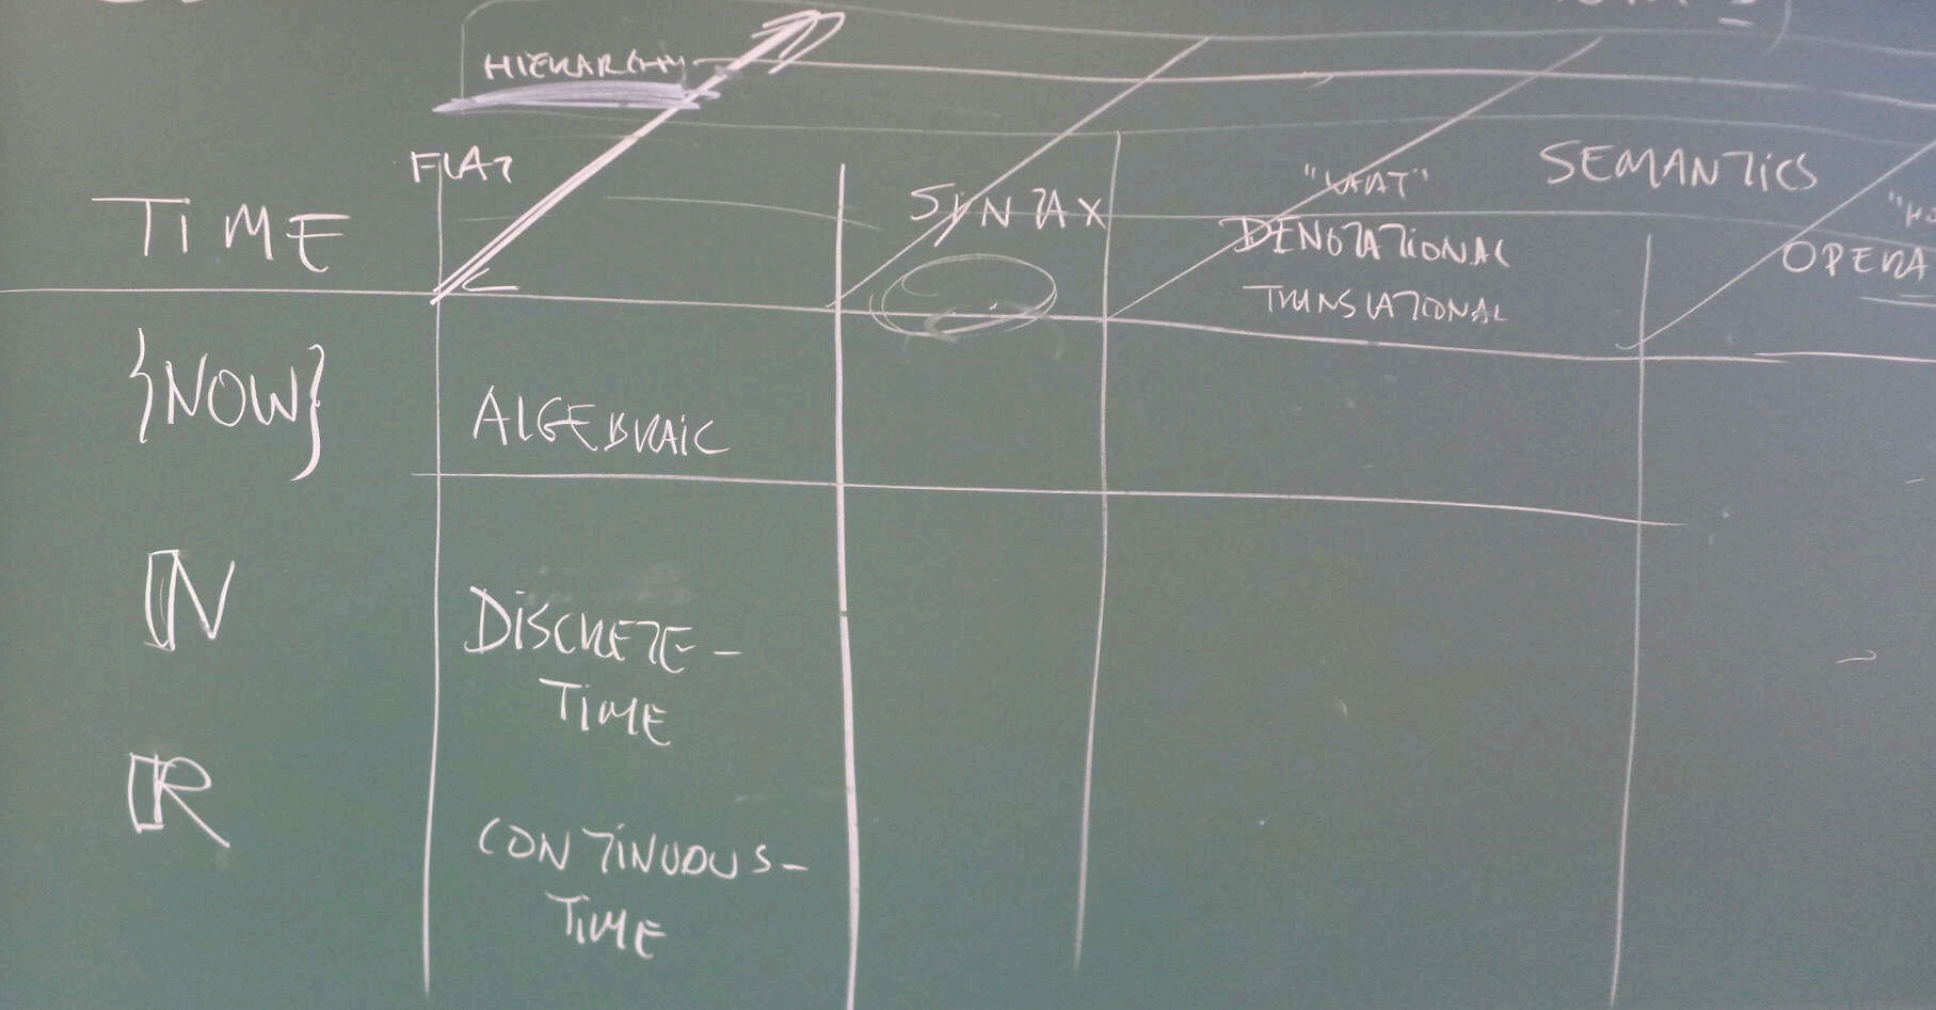 HIERARCHY
FLAT
TIME
SYNTAX
SEMANTICS
"WHAT"
DENOTATIONAL
TRANSLATIONAL
OPERA
{NOW}
ALGEBRAIC
ℕ
DISCRETE-
TIME
ℝ
CONTINUOUS-
TIME